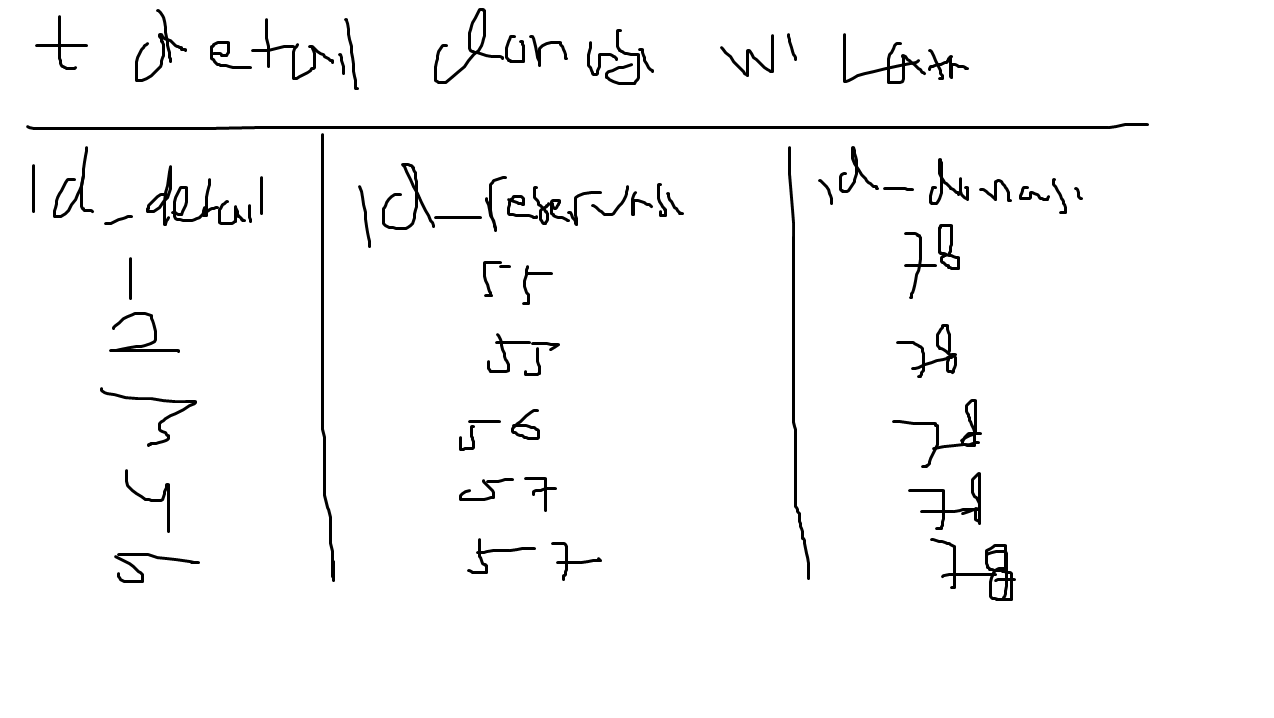 t detail donasi
Id_detail Id_reservasi id_donasi
1 55 78
2 55 78
3 56 78
4 57 78
5 57 78